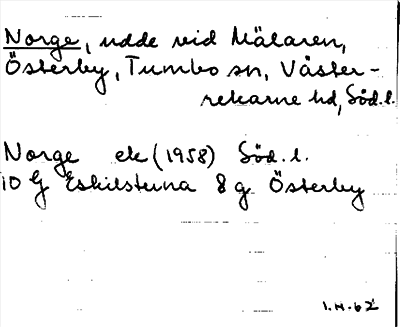 Norge, udde vid Mälaren,
Österby, Tumbo sn, Väster-
rekarne hd, Söd.l.
Norge ek (1958) Söd.l.
10 G Eskilstuna 8 g Österby
1.H.62